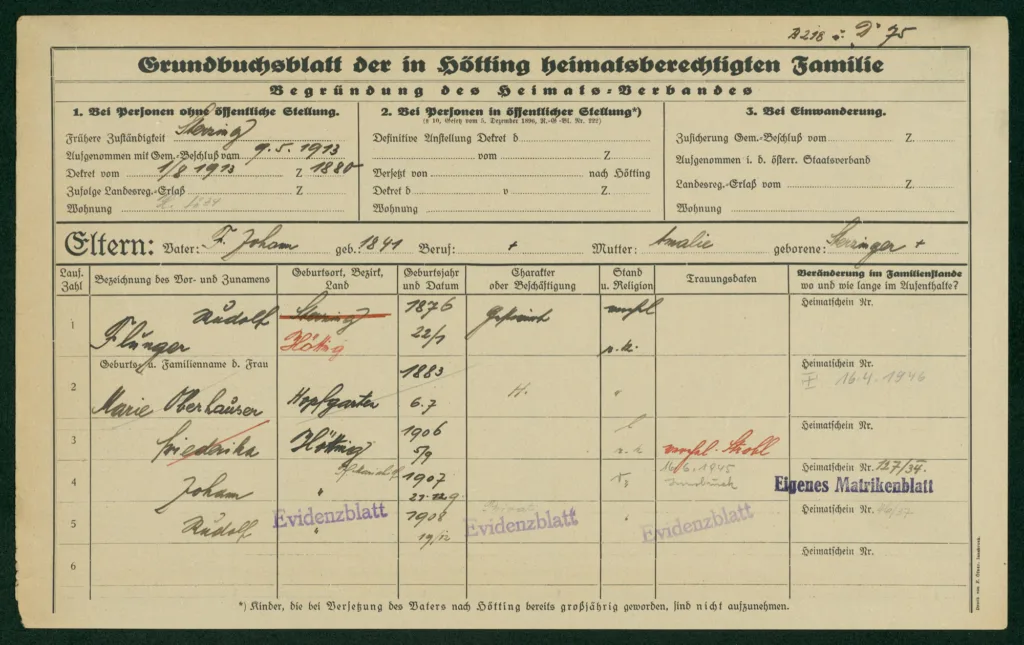 D 218 u. D 75
Grundbuchsblatt der in Hötting heimatsberechtigten Familie
Begründung des Heimats-Verbandes
1. Bei Personen ohne öffentliche Stellung.
Frühere Zuständigkeit
Aufgenommen mit Gem.-Beschluß vom 9.5.1913
Dekret vom 1/8 1913 Z 1880
Zufolge Landesreg.-Erlaß Z
Wohnung
2. Bei Personen in öffentlicher Stellung*)
(§ 10, Gesetz vom 5. Dezember 1896, R.-G.-Bl. Nr. 222)
Definitive Anstellung Dekret d
vom Z
Versetzt von nach Hötting
Dekret d v Z
Wohnung
3. Bei Einwanderung.
Zusicherung Gem.-Beschluß vom Z.
Aufgenommen i. d. österr. Staatsverband
Landesreg.-Erlaß vom Z.
Wohnung
Eltern: Vater: F. Johann geb. 1841 Beruf: + Mutter: Amalie geborene: +
Lauf. Zahl
Bezeichnung des Vor- und Zunamens
Geburtsort, Bezirk, Land
Geburtsjahr und Datum
Charakter oder Beschäftigung
Stand u. Religion
Trauungsdaten
Veränderung im Familienstande wo und wie lange im Aufenthalte?
1 Rudolf Flunger Hötting 1876 22/1 r. k. Heimatschein Nr.
Geburts- u. Familienname d. Frau
2 Marie Oberhauser Hopfgarten 1883 6.7 H. " Heimatschein Nr. 16.4.1946
3 Friederika Hötting 1906 5/9 Heimatschein Nr.
4 Johann " 1907 16.6.1945 Innsbruck Heimatschein Nr. 127/34.
Eigenes Matrikenblatt
5 Rudolf " 1908 19/12 " Heimatschein Nr.
Evidenzblatt Evidenzblatt Evidenzblatt
6 Heimatschein Nr.
*) Kinder, die bei Versetzung des Vaters nach Hötting bereits großjährig geworden, sind nicht aufzunehmen.